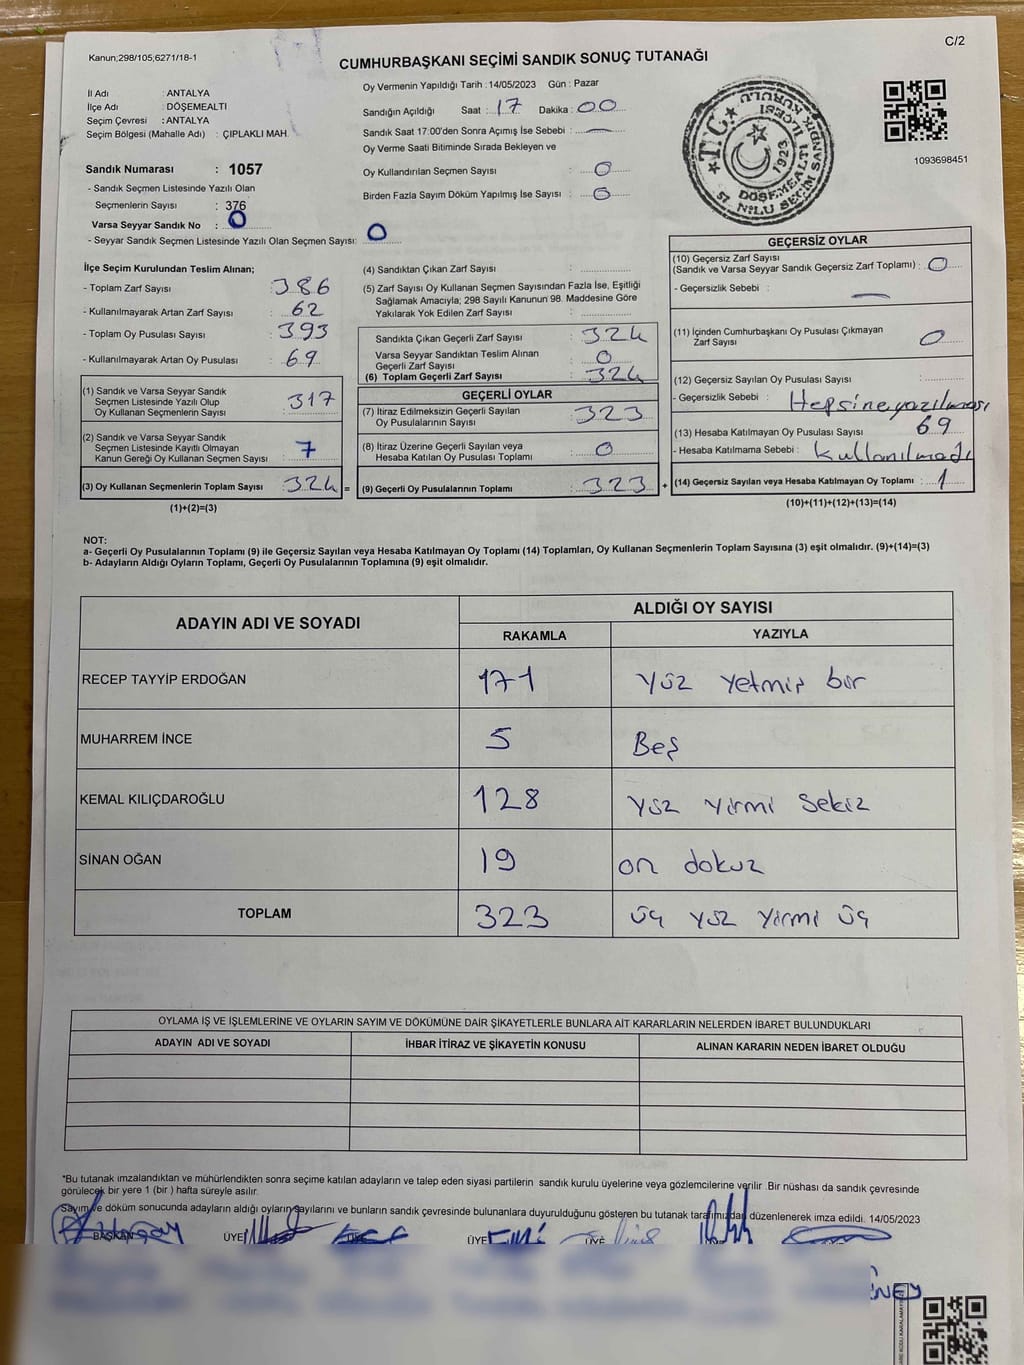 Kanun;298/105;6271/18-1
C/2
CUMHURBAŞKANI SEÇİMİ SANDIK SONUÇ TUTANAĞI
İl Adı : ANTALYA
İlçe Adı : DÖŞEMEALTI
Seçim Çevresi : ANTALYA
Seçim Bölgesi (Mahalle Adı) : ÇIPLAKLI MAH.
Sandık Numarası : 1057
- Sandık Seçmen Listesinde Yazılı Olan
Seçmenlerin Sayısı : 376
Varsa Seyyar Sandık No : 0
- Seyyar Sandık Seçmen Listesinde Yazılı Olan Seçmen Sayısı: 0
Oy Vermenin Yapıldığı Tarih : 14/05/2023 Gün : Pazar
Sandığın Açıldığı Saat : 17 Dakika : 00
Sandık Saat 17:00'den Sonra Açımış İse Sebebi : —
Oy Verme Saati Bitiminde Sırada Bekleyen ve
Oy Kullandırılan Seçmen Sayısı : 0
Birden Fazla Sayım Döküm Yapılmış İse Sayısı : 0
T.C.
DÖŞEMEALTI İLÇESİ
1057 NOLU SEÇİM SANDIK KURULU
1923
1093698451
İlçe Seçim Kurulundan Teslim Alınan;
- Toplam Zarf Sayısı : 386
- Kullanılmayarak Artan Zarf Sayısı : 62
- Toplam Oy Pusulası Sayısı : 393
- Kullanılmayarak Artan Oy Pusulası : 69
(1) Sandık ve Varsa Seyyar Sandık
Seçmen Listesinde Yazılı Olup
Oy Kullanan Seçmenlerin Sayısı : 317
(2) Sandık ve Varsa Seyyar Sandık
Seçmen Listesinde Kayıtlı Olmayan
Kanun Gereği Oy Kullanan Seçmen Sayısı : 7
(3) Oy Kullanan Seçmenlerin Toplam Sayısı : 324 =
(1)+(2)=(3)
(4) Sandıktan Çıkan Zarf Sayısı :
(5) Zarf Sayısı Oy Kullanan Seçmen Sayısından Fazla İse, Eşitliği
Sağlamak Amacıyla; 298 Sayılı Kanunun 98. Maddesine Göre
Yakılarak Yok Edilen Zarf Sayısı :
Sandıkta Çıkan Geçerli Zarf Sayısı : 324
Varsa Seyyar Sandıktan Teslim Alınan
Geçerli Zarf Sayısı : 0
(6) Toplam Geçerli Zarf Sayısı : 324
GEÇERLİ OYLAR
(7) İtiraz Edilmeksizin Geçerli Sayılan
Oy Pusulalarının Sayısı : 323
(8) İtiraz Üzerine Geçerli Sayılan veya
Hesaba Katılan Oy Pusulası Toplamı : 0
(9) Geçerli Oy Pusulalarının Toplamı : 323 +
GEÇERSİZ OYLAR
(10) Geçersiz Zarf Sayısı
(Sandık ve Varsa Seyyar Sandık Geçersiz Zarf Toplamı) : 0
- Geçersizlik Sebebi : —
(11) İçinden Cumhurbaşkanı Oy Pusulası Çıkmayan
Zarf Sayısı : 0
(12) Geçersiz Sayılan Oy Pusulası Sayısı :
- Geçersizlik Sebebi : Hepsine yazılması
(13) Hesaba Katılmayan Oy Pusulası Sayısı : 69
- Hesaba Katılmama Sebebi : kullanılmadı
(14) Geçersiz Sayılan veya Hesaba Katılmayan Oy Toplamı : 1
(10)+(11)+(12)+(13)=(14)
NOT:
a- Geçerli Oy Pusulalarının Toplamı (9) ile Geçersiz Sayılan veya Hesaba Katılmayan Oy Toplamı (14) Toplamları, Oy Kullanan Seçmenlerin Toplam Sayısına (3) eşit olmalıdır. (9)+(14)=(3)
b- Adayların Aldığı Oyların Toplamı, Geçerli Oy Pusulalarının Toplamına (9) eşit olmalıdır.
ADAYIN ADI VE SOYADI
ALDIĞI OY SAYISI
RAKAMLA YAZIYLA
RECEP TAYYİP ERDOĞAN 171 Yüz Yetmiş bir
MUHARREM İNCE 5 Beş
KEMAL KILIÇDAROĞLU 128 Yüz Yirmi Sekiz
SİNAN OĞAN 19 on dokuz
TOPLAM 323 üç yüz yirmi üç
OYLAMA İŞ VE İŞLEMLERİNE VE OYLARIN SAYIM VE DÖKÜMÜNE DAİR ŞİKAYETLERLE BUNLARA AİT KARARLARIN NELERDEN İBARET BULUNDUKLARI
ADAYIN ADI VE SOYADI İHBAR İTİRAZ VE ŞİKAYETİN KONUSU ALINAN KARARIN NEDEN İBARET OLDUĞU
*Bu tutanak imzalandıktan ve mühürlendikten sonra seçime katılan adayların ve talep eden siyasi partilerin sandık kurulu üyelerine veya gözlemcilerine verilir .Bir nüshası da sandık çevresinde
görülecek bir yere 1 (bir ) hafta süreyle asılır.
Sayım ve döküm sonucunda adayların aldığı oyların sayılarını ve bunların sandık çevresinde bulunanlara duyurulduğunu gösteren bu tutanak tarafımızdan düzenlenerek imza edildi. 14/05/2023
BAŞKAN ÜYE ÜYE ÜYE